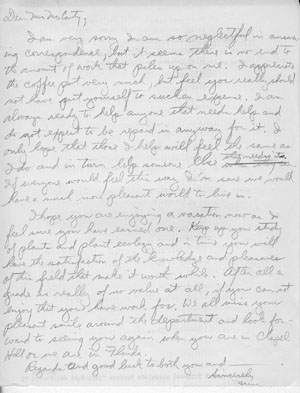 Dear Mr. McCarty,
I am very sorry I am so neglectful in answer-
ing correspondence, but it seems there is no end to
the amount of work that piles up on me. I appreciate
the coffee pot very much, but feel you really should
not have put yourself to such an expense. I am
always ready to help anyone that needs help and
do not expect to be repaid in anyway for it. I
only hope that those I help will feel the same as
I do and in turn help someone else
If everyone would feel this way I'm sure we would
have a much more pleasant world to live in.
I hope you are enjoying a vacation now as I
feel sure you have earned one. Keep up your study
of plants and plant ecology and in time you will
have the satisfaction of the knowledge and pleasures
of this field that make it worth while. After all a
grade is really of no value at all, if you can not
enjoy what you have work for. We all miss your
pleasant smile around the department and look for-
ward to seeing you again when you are in Chapel
Hill or we are in Florida.
Regards and good luck to both you and
Sincerely